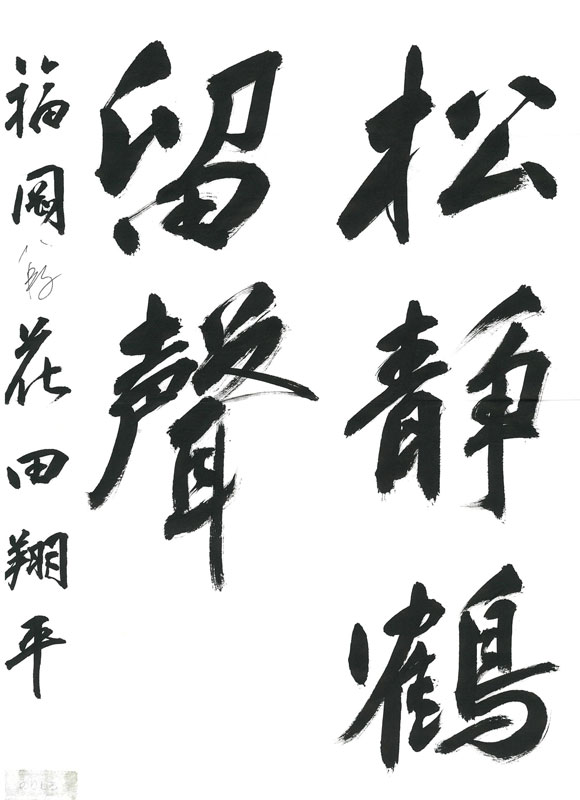 松静鶴
留聲
福岡 花田翔平